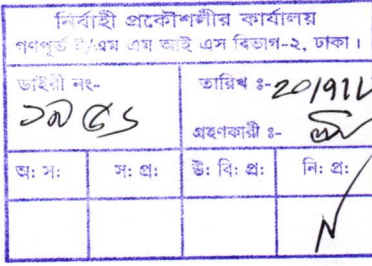 নির্বাহী প্রকৌশলীর কার্যালয়
গণপূর্ত ই/এম এম আই এস বিভাগ-২, ঢাকা।
ডাইরী নং- তারিখ ঃ-
গ্রহণকারী ঃ-
অঃ সঃ সঃ প্রঃ উঃ বিঃ প্রঃ নিঃ প্রঃ